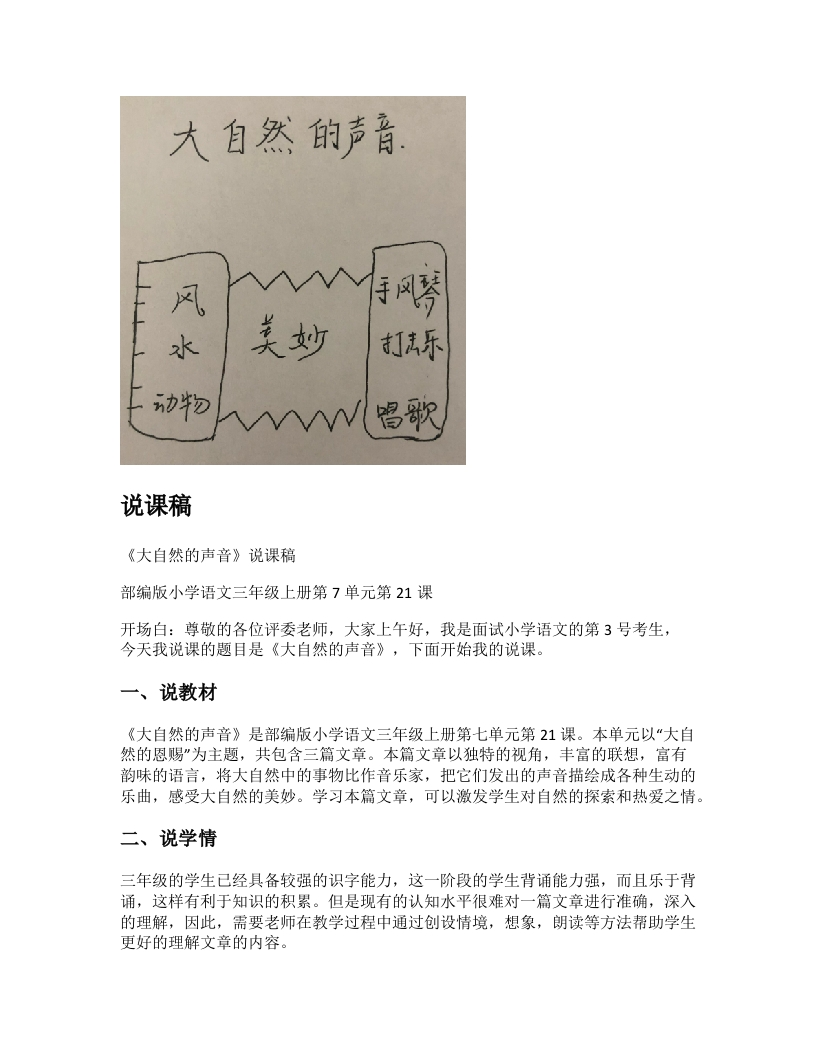 大自然的声音.
风
水
动物
美妙
手风琴
打击乐
唱歌
说课稿
《大自然的声音》说课稿
部编版小学语文三年级上册第 7 单元第 21 课
开场白：尊敬的各位评委老师，大家上午好，我是面试小学语文的第 3 号考生，
今天我说课的题目是《大自然的声音》，下面开始我的说课。
一、说教材
《大自然的声音》是部编版小学语文三年级上册第七单元第 21 课。本单元以“大自
然的恩赐”为主题，共包含三篇文章。本篇文章以独特的视角，丰富的联想，富有
韵味的语言，将大自然中的事物比作音乐家，把它们发出的声音描绘成各种生动的
乐曲，感受大自然的美妙。学习本篇文章，可以激发学生对自然的探索和热爱之情。
二、说学情
三年级的学生已经具备较强的识字能力，这一阶段的学生背诵能力强，而且乐于背
诵，这样有利于知识的积累。但是现有的认知水平很难对一篇文章进行准确，深入
的理解，因此，需要老师在教学过程中通过创设情境，想象，朗读等方法帮助学生
更好的理解文章的内容。